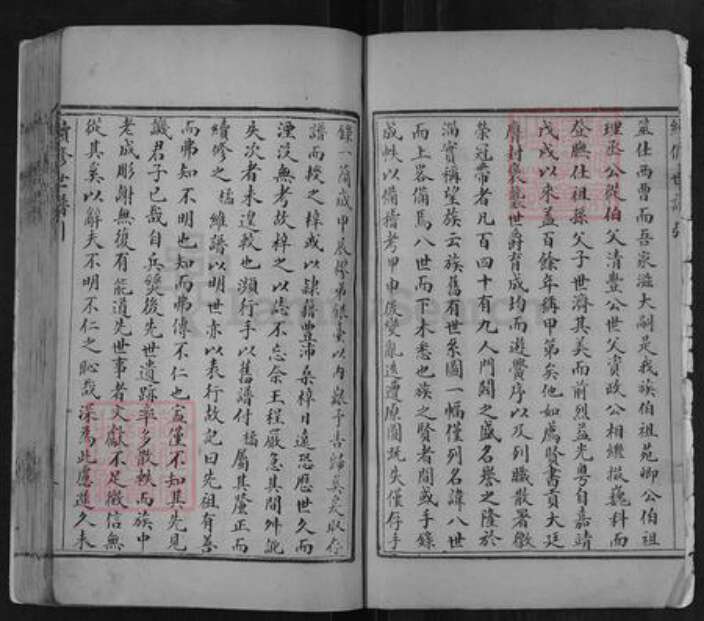 續修世譜引
筮仕西曹而吾家滋大嗣是我族伯祖苑卿公伯祖
理丞公從伯父清豐公世父資政公相繼掇巍科而
登膴仕祖孫父子世濟其美而前烈益光粤自嘉靖
戊戌以來蓋百餘年稱甲第矣他如薦賢書貢大廷
膺封襲世爵育成均而遊黌序以及列職散署徼
榮冠帶者凡百四十有九人門閥之盛名譽之隆於
滿實稱望族云族舊有世系圖一幅僅列名諱八世
而上畧備焉八世而下未悉也族之賢者間或手錄
成帙以備稽考甲申後變亂迭遭原圖旣失僅存手
錄一簡歲甲辰膠弟銀臺以內艱予告歸奠居取存
譜而授之梓或以隸籍豐沛桑梓日遠恐歷世久而
湮没無考故梓之以志不忘余王程嚴急其間舛訛
失次者未遑較也瀕行手以舊譜付樠屬其釐正而
續修之樠維譜以明世亦以表行故記曰先祖有善
而弗知不明也知而弗傳不仁也豈僅不知其先見
譏君子已哉自兵燹後先世遺踪率多散軼而族中
老成彫謝無復有能道先世事者文獻不足徵信無
從其奚以解夫不明不仁之恥哉深為此慮進久未
續修世譜引